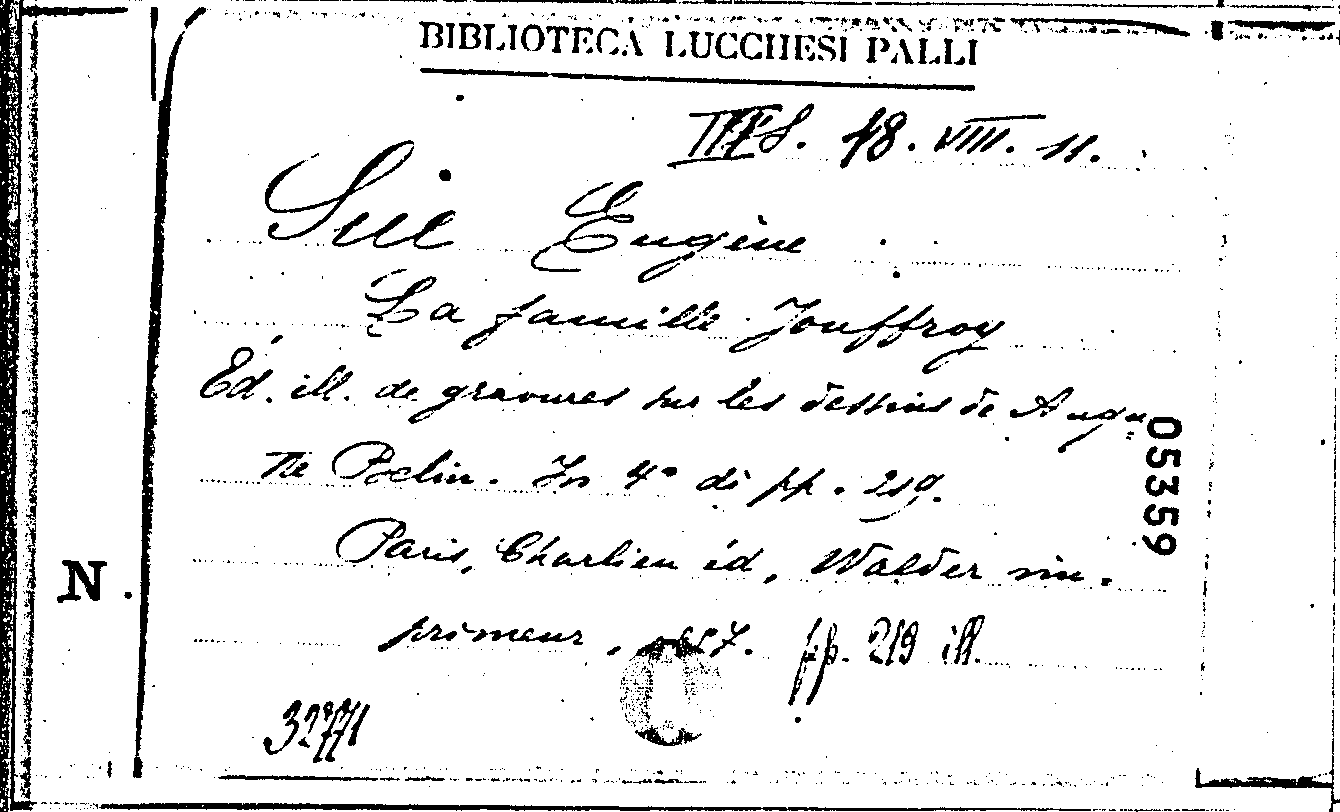 BIBLIOTECA LUCCHESI PALLI
18. VIII. 11.
Sue Eugène
La famille Jouffroy
Éd. ill. de gravures sur les dessins de Augu-
ste Belin. In 4° di pp. 219.
Paris, Charlieu éd, Walder im-
primeur, pp. 219 ill.
32771
N.
05359